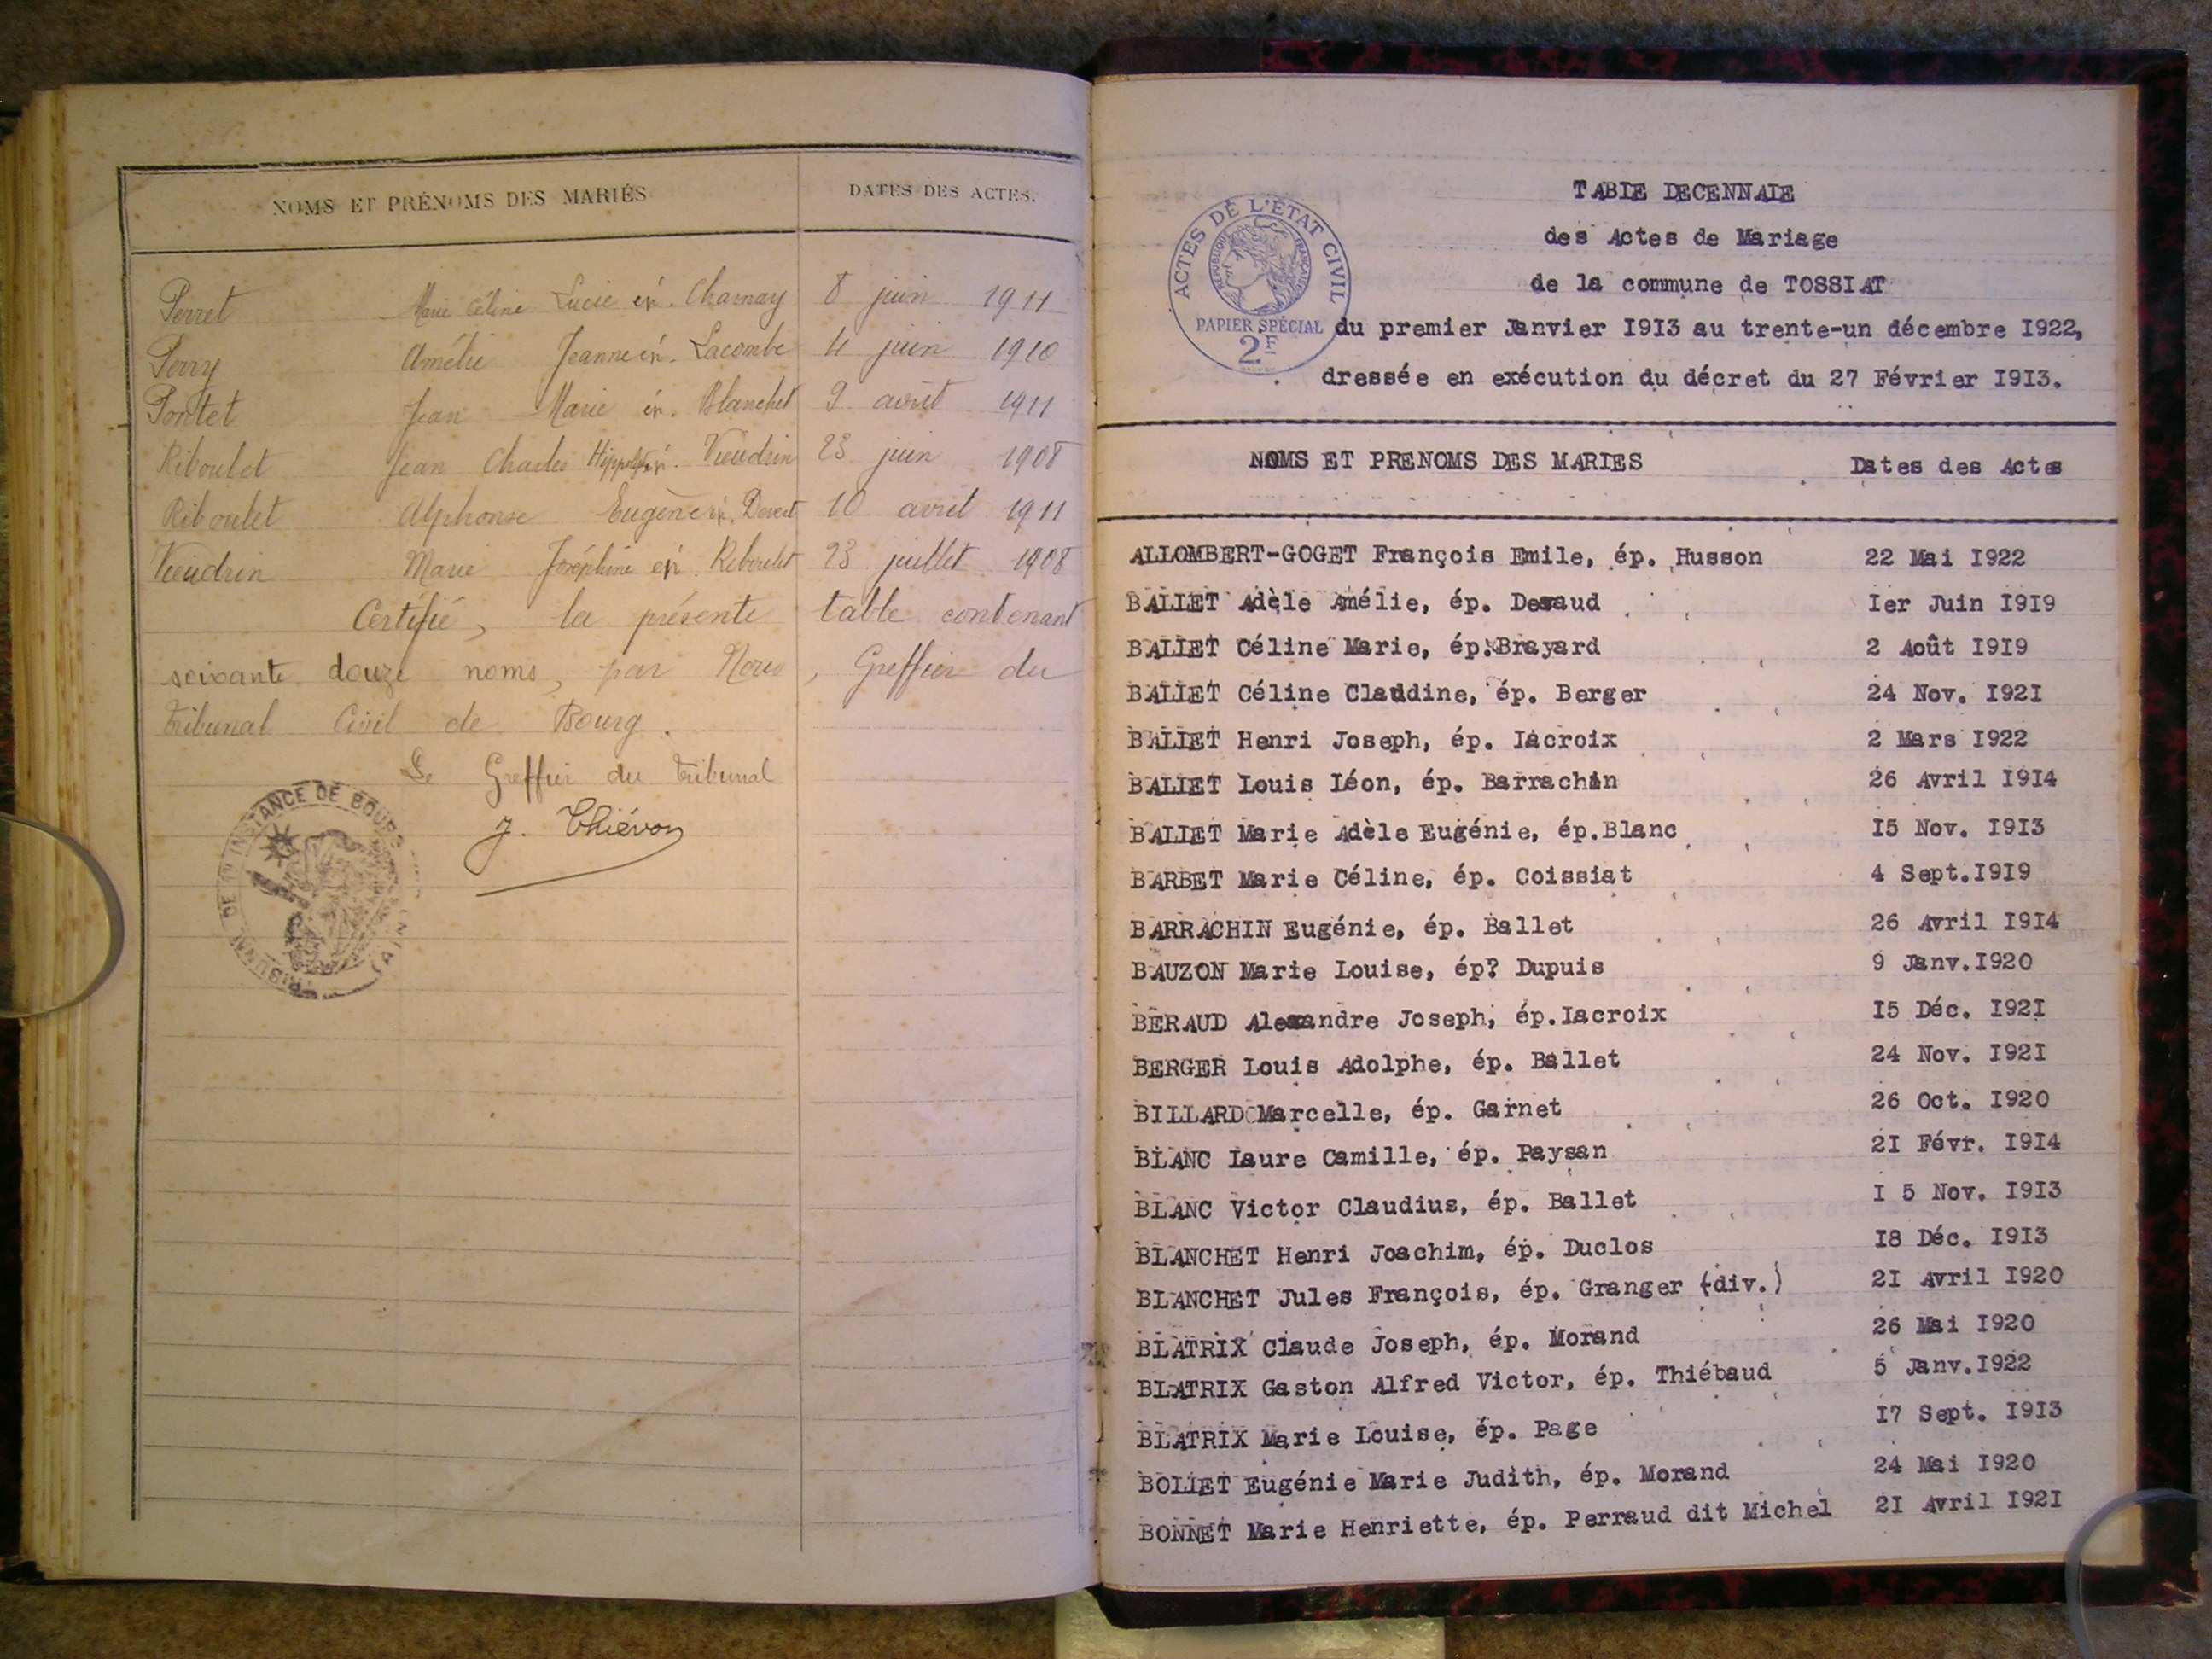 NOMS ET PRÉNOMS DES MARIÉS
DATES DES ACTES.
Perret Marie Céline Lucie ép. Charnay 8 juin 1911
Perry Amélie Jeanne ép. Lacombe 4 juin 1910
Pontet Jean Marie ép. Blanchet 9 avril 1911
Riboulet Jean Charles Hippolyte ép. Vieudrin 23 juin 1908
Riboulet Alphonse Eugène ép. 10 avril 1911
Vieudrin Marie Joséphine ép. Riboulet 23 juillet 1908
Certifié, la présente table contenant
soixante douze noms, par Nous, Greffier du
Tribunal Civil de Bourg.
Le Greffier du Tribunal
J. Thiévon
TRIBUNAL DE 1re INSTANCE DE BOURG (AIN)
ACTES DE L'ÉTAT CIVIL
RÉPUBLIQUE FRANÇAISE
PAPIER SPÉCIAL
2F
TABLE DECENNALE
des Actes de Mariage
de la commune de TOSSIAT
du premier Janvier I9I3 au trente-un décembre I922,
dressée en exécution du décret du 27 Février I9I3.
NOMS ET PRENOMS DES MARIES Dates des Actes
ALLOMBERT-GOGET François Emile, ép. Husson 22 Mai I922
BALLET Adèle Amélie, ép. Ier Juin I9I9
BALLET Céline Marie, ép. Brayard 2 Août I9I9
BALLET Céline Claudine, ép. Berger 24 Nov. I92I
BALLET Henri Joseph, ép. Lacroix 2 Mars I922
BALLET Louis Léon, ép. Barrachin 26 Avril I9I4
BALLET Marie Adèle Eugénie, ép.Blanc I5 Nov. I9I3
BARBET Marie Céline, ép. Coissiat 4 Sept.I9I9
BARRACHIN Eugénie, ép. Ballet 26 Avril I9I4
BAUZON Marie Louise, ép? Dupuis 9 Janv.I920
BERAUD Alexandre Joseph, ép.Lacroix I5 Déc. I92I
BERGER Louis Adolphe, ép. Ballet 24 Nov. I92I
BILLARD Marcelle, ép. Garnet 26 Oct. I920
BLANC Laure Camille, ép. Paysan 2I Févr. I9I4
BLANC Victor Claudius, ép. Ballet I 5 Nov. I9I3
BLANCHET Henri Joachim, ép. Duclos I8 Déc. I9I3
BLANCHET Jules François, ép. Granger (div.) 2I Avril I920
BLATRIX Claude Joseph, ép. Morand 26 Mai I920
BLATRIX Gaston Alfred Victor, ép. Thiébaud 5 Janv.I922
BLATRIX Marie Louise, ép. Page I7 Sept. I9I3
BOLLET Eugénie Marie Judith, ép. Morand 24 Mai I920
BONNET Marie Henriette, ép. Perraud dit Michel 2I Avril I92I